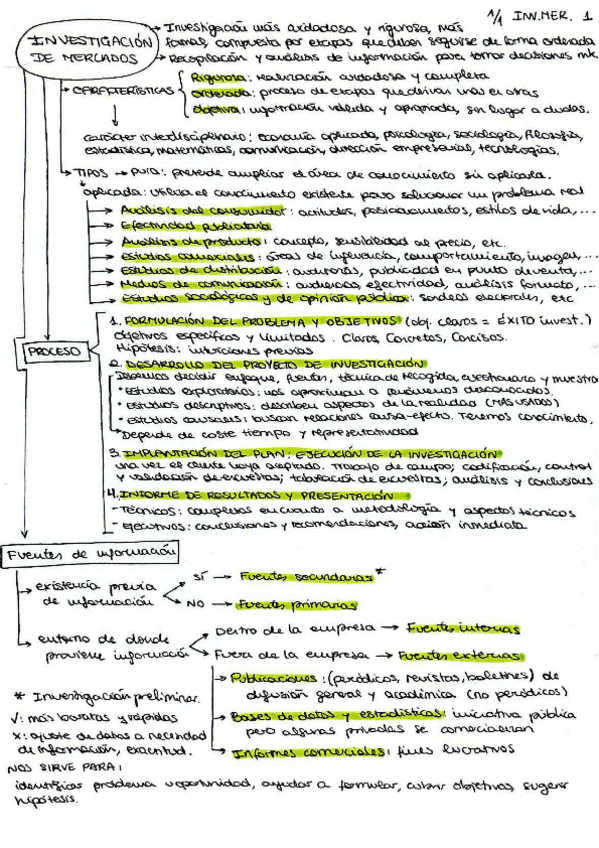 1/1 INV.MER. 1
INVESTIGACIÓN
DE MERCADOS
→ Investigación más cuidadosa y rigurosa, más
formal, compuesta por etapas que deben seguirse de forma ordenada
→ Recopilación y análisis de información para tomar decisiones mk.
→ CARACTERÍSTICAS
Rigurosa: realización cuidadosa y completa
Ordenada: proceso de etapas que derivan unas en otras
Objetiva: información válida y apropiada, sin lugar a dudas.
Carácter interdisciplinario: economía aplicada, psicología, sociología, filosofía,
estadística, matemáticas, comunicación, dirección empresarial, tecnologías.
→ TIPOS → pura: pretende ampliar el área de conocimiento sin aplicarla.
aplicada: utiliza el conocimiento existente para solucionar un problema real
→ Análisis del consumidor: actitudes, posicionamientos, estilos de vida, ...
→ Efectividad publicitaria
→ Análisis de producto: concepto, sensibilidad al precio, etc.
→ Estudios comerciales: áreas de influencia, comportamiento, imagen, ...
→ Estudios de distribución: auditorías, publicidad en punto de venta, ...
→ Medios de comunicación: audiencia, efectividad, análisis formato, ...
→ Estudios sociológicos y de opinión pública: sondeos electorales, etc
PROCESO
1. FORMULACIÓN DEL PROBLEMA Y OBJETIVOS (obj. claros = ÉXITO invest.)
Objetivos específicos y limitados. Claros, Concretos, Concisos.
Hipótesis: intuiciones previas
2. DESARROLLO DEL PROYECTO DE INVESTIGACIÓN
Debemos decidir enfoque, fuentes, técnica de recogida, cuestionario y muestra
• Estudios exploratorios: nos aproximan a fenómenos desconocidos.
• Estudios descriptivos: describen aspectos de la realidad (MÁS USADO)
• Estudios causales: buscan relaciones causa-efecto. Tenemos conocimiento.
Depende de coste tiempo y representatividad
3. IMPLANTACIÓN DEL PLAN: EJECUCIÓN DE LA INVESTIGACIÓN
una vez el cliente haya aceptado. Trabajo de campo; codificación, control
y validación de encuestas; tabulación de encuestas; análisis y conclusiones
4. INFORME DE RESULTADOS Y PRESENTACIÓN
- Técnicos: complejos en cuanto a metodología y aspectos técnicos
- Ejecutivos: conclusiones y recomendaciones, acción inmediata
Fuentes de información
→ existencia previa
de información
SÍ → Fuentes secundarias *
NO → Fuentes primarias
→ entorno de donde
proviene información
Dentro de la empresa → Fuentes internas
Fuera de la empresa → Fuentes externas
→ Publicaciones: (periódicos, revistas, boletines) de
difusión general y académica (no periódicos)
→ Bases de datos y estadísticas: iniciativa pública
pero algunas privadas se comercializan
→ Informes comerciales: fines lucrativos
* Investigación preliminar.
√: más baratas y rápidas
x: ajuste de datos a necesidad
de información, exactitud.
NOS SIRVE PARA:
identificar problema u oportunidad, ayudar a formular, cubrir objetivos, sugerir
hipótesis.